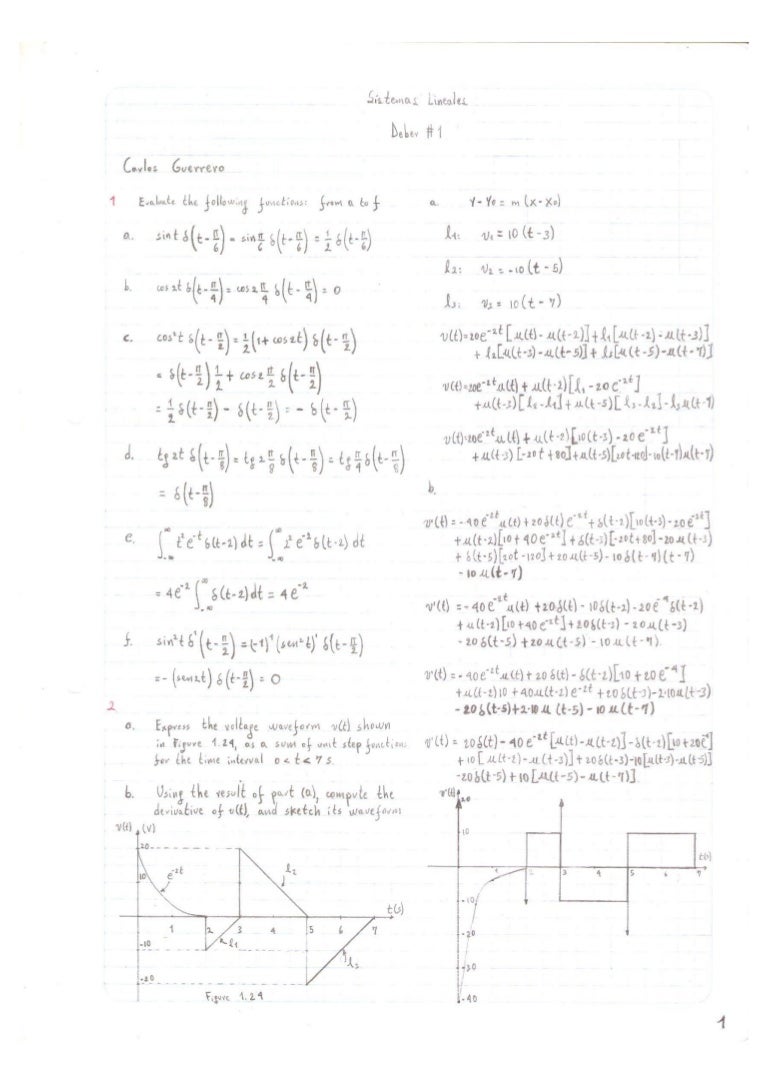 Sistemas Lineales
Deber #1
Carlos Guerrero
1 Evaluate the following functions: from a to f
a. sint δ(t-π/6) = sin π/6 δ(t-π/6) = 1/2 δ(t-π/6)
b. cos 2t δ(t-π/4) = cos 2 π/4 δ(t-π/4) = 0
c. cos²t δ(t-π/2) = 1/2 (1+ cos 2t) δ(t-π/2)
= δ(t-π/2) 1/2 + cos 2 π/2 δ(t-π/2)
= 1/2 δ(t-π/2) - δ(t-π/2) = - δ(t-π/2)
d. tg 2t δ(t-π/8) = tg 2 π/8 δ(t-π/8) = tg π/4 δ(t-π/8)
= δ(t-π/8)
e. ∫_-∞^∞ t² e^-t δ(t-2) dt = ∫_-∞^∞ 2² e^-2 δ(t-2) dt
= 4e^-2 ∫_-∞^∞ δ(t-2) dt = 4e^-2
f. sin²t δ'(t-π/2) = (-1)¹ (sen²t)' δ(t-π/2)
= - (sen2t) δ(t-π/2) = 0
2
a. Express the voltage waveform v(t) shown
in Figure 1.24, as a sum of unit step functions
for the time interval 0 < t < 7 s.
b. Using the result of part (a), compute the
derivative of v(t), and sketch its waveform
v(t) (V)
20
10
e^-2t
l2
t(s)
1 2 3 4 5 6 7
-10
l1
l3
-20
Figure 1.24
a. Y-Y0 = m (X-X0)
l1: v1 = 10 (t-3)
l2: v2 = -10 (t-5)
l3: v3 = 10 (t-7)
v(t)=20e^-2t [u(t)- u(t-2)] + l1[u(t-2) - u(t-3)]
+ l2[u(t-3)-u(t-5)] + l3[u(t-5)-u(t-7)]
v(t)=20e^-2t u(t) + u(t-2)[l1-20e^-2t]
+u(t-3)[l2-l1]+u(t-5)[l3-l2]-l3u(t-7)
v(t)=20e^-2t u(t) + u(t-2)[10(t-3)-20e^-2t]
+u(t-3)[-20t+80]+u(t-5)[20t-120]-10(t-7)u(t-7)
b.
v'(t)=-40e^-2t u(t)+20δ(t)e^-2t+δ(t-2)[10(t-3)-20e^-2t]
+u(t-2)[10+40e^-2t]+δ(t-3)[-20t+80]-20u(t-3)
+δ(t-5)[20t-120]+20u(t-5)-10δ(t-7)(t-7)
-10u(t-7)
v'(t) =-40e^-2t u(t) +20δ(t)- 10δ(t-2)-20e^-4 δ(t-2)
+u(t-2)[10+40e^-2t]+20δ(t-3)-20u(t-3)
-20δ(t-5)+20u(t-5)-10u(t-7).
v'(t) =-40e^-2t u(t)+20δ(t)-δ(t-2)[10+20e^-4]
+u(t-2)10+40u(t-2)e^-2t+20δ(t-3)-2·10u(t-3)
-20δ(t-5)+2·10 u(t-5)-10u(t-7)
v'(t) = 20δ(t)-40e^-2t[u(t)-u(t-2)]-δ(t-2)[10+20e^-4]
+10[u(t-2)-u(t-3)]+20δ(t-3)-10[u(t-3)-u(t-5)]
-20δ(t-5)+10[u(t-5)-u(t-7)]
v'(t)
20
10
t(s)
1 2 3 4 5 6 7
-10
-20
-30
-40
1